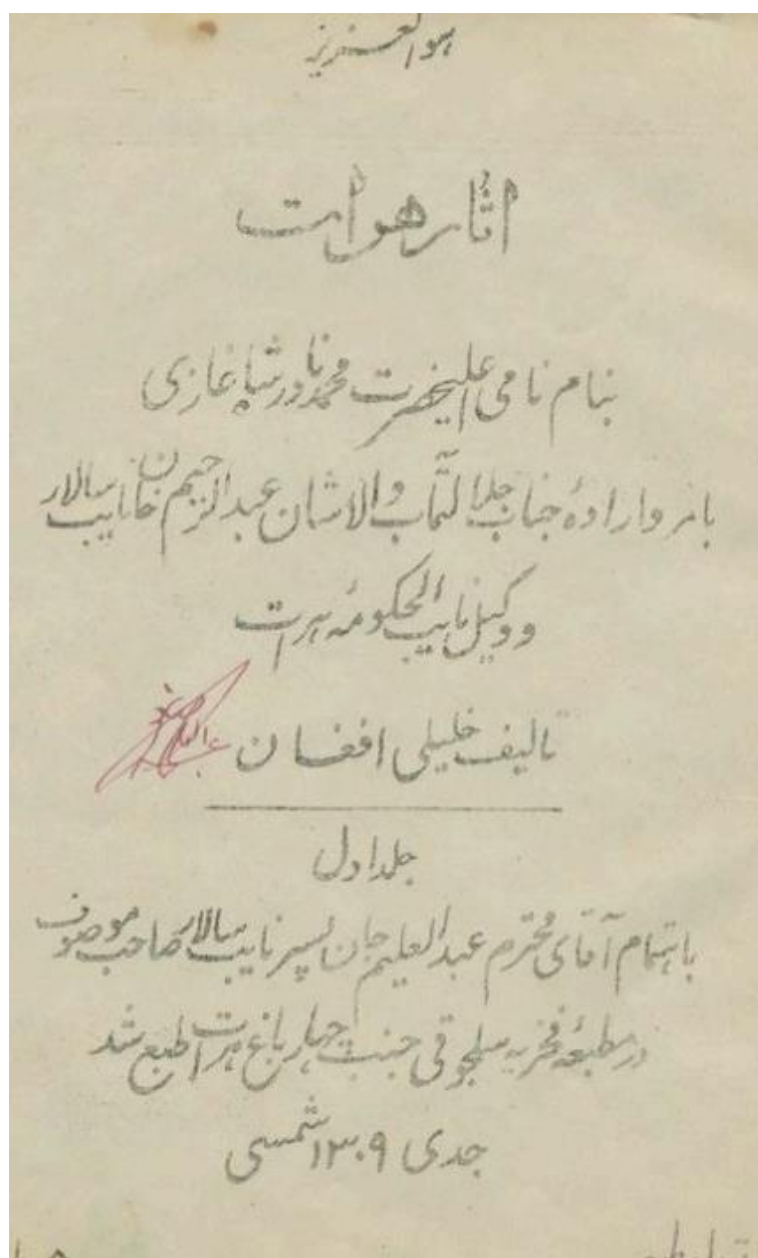 هوالعزیز
اثار هرات
بنام نامی اعلیحضرت محمد نادر شاه غازی
بامر و ارادهٔ جناب جلالتمآب والاشان عبدالرحیم خان نایب سالار
و وکیل نایب الحکومهٔ هرات
تالیف خلیلی افغان
جلد اول
باهتمام آقای محترم عبدالعلیم جان پسر نایب سالار صاحب موصوف
در مطبعهٔ فخریه سلجوقی جنب چهار باغ هرات طبع شد
جدی ۱۳۰۹ شمسی